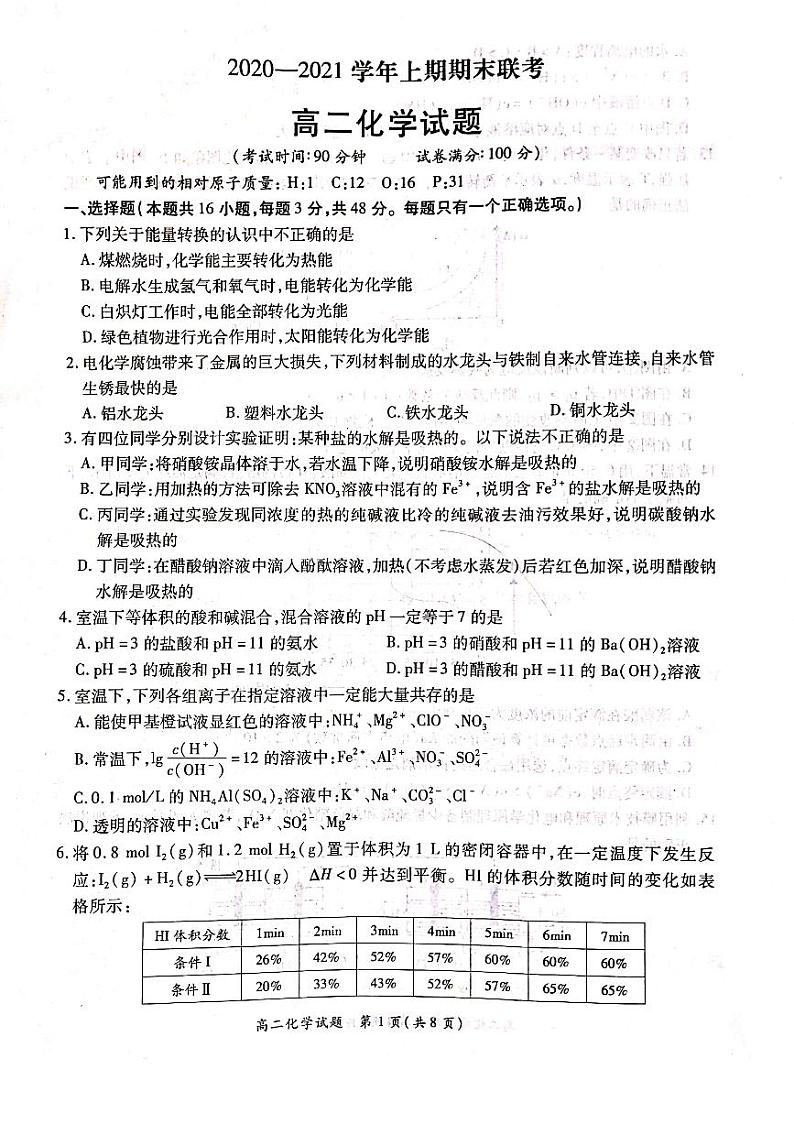 2020—2021 学年上期期末联考
高二化学试题
(考试时间:90 分钟 试卷满分:100 分)
可能用到的相对原子质量:H:1 C:12 O:16 P:31
一、选择题(本题共 16 小题,每题 3 分,共 48 分。每题只有一个正确选项。)
1. 下列关于能量转换的认识中不正确的是
A. 煤燃烧时,化学能主要转化为热能
B. 电解水生成氢气和氧气时,电能转化为化学能
C. 白炽灯工作时,电能全部转化为光能
D. 绿色植物进行光合作用时,太阳能转化为化学能
2. 电化学腐蚀带来了金属的巨大损失,下列材料制成的水龙头与铁制自来水管连接,自来水管
生锈最快的是
A. 铝水龙头 B. 塑料水龙头 C. 铁水龙头 D. 铜水龙头
3. 有四位同学分别设计实验证明:某种盐的水解是吸热的。以下说法不正确的是
A. 甲同学:将硝酸铵晶体溶于水,若水温下降,说明硝酸铵水解是吸热的
B. 乙同学:用加热的方法可除去 KNO₃溶液中混有的 Fe³⁺,说明含 Fe³⁺的盐水解是吸热的
C. 丙同学:通过实验发现同浓度的热的纯碱液比冷的纯碱液去油污效果好,说明碳酸钠水
解是吸热的
D. 丁同学:在醋酸钠溶液中滴入酚酞溶液,加热(不考虑水蒸发)后若红色加深,说明醋酸钠
水解是吸热的
4. 室温下等体积的酸和碱混合,混合溶液的 pH 一定等于 7 的是
A. pH = 3 的盐酸和 pH = 11 的氨水 B. pH = 3 的硝酸和 pH = 11 的 Ba(OH)₂溶液
C. pH = 3 的硫酸和 pH = 11 的氨水 D. pH = 3 的醋酸和 pH = 11 的 Ba(OH)₂溶液
5. 室温下,下列各组离子在指定溶液中一定能大量共存的是
A. 能使甲基橙试液显红色的溶液中:NH₄⁺、Mg²⁺、ClO⁻、NO₃⁻
B. 常温下,lg c(H⁺)/c(OH⁻) = 12 的溶液中:Fe²⁺、Al³⁺、NO₃⁻、SO₄²⁻
C. 0.1 mol/L 的 NH₄Al(SO₄)₂溶液中:K⁺、Na⁺、CO₃²⁻、Cl⁻
D. 透明的溶液中:Cu²⁺、Fe³⁺、SO₄²⁻、Mg²⁺
6. 将 0.8 mol I₂(g)和 1.2 mol H₂(g)置于体积为 1 L 的密闭容器中,在一定温度下发生反
应:I₂(g) + H₂(g)⇌2HI(g) ΔH<0 并达到平衡。HI 的体积分数随时间的变化如表
格所示:
HI 体积分数 1min 2min 3min 4min 5min 6min 7min
条件Ⅰ 26% 42% 52% 57% 60% 60% 60%
条件Ⅱ 20% 33% 43% 52% 57% 65% 65%
高二化学试题 第 1 页(共 8 页)